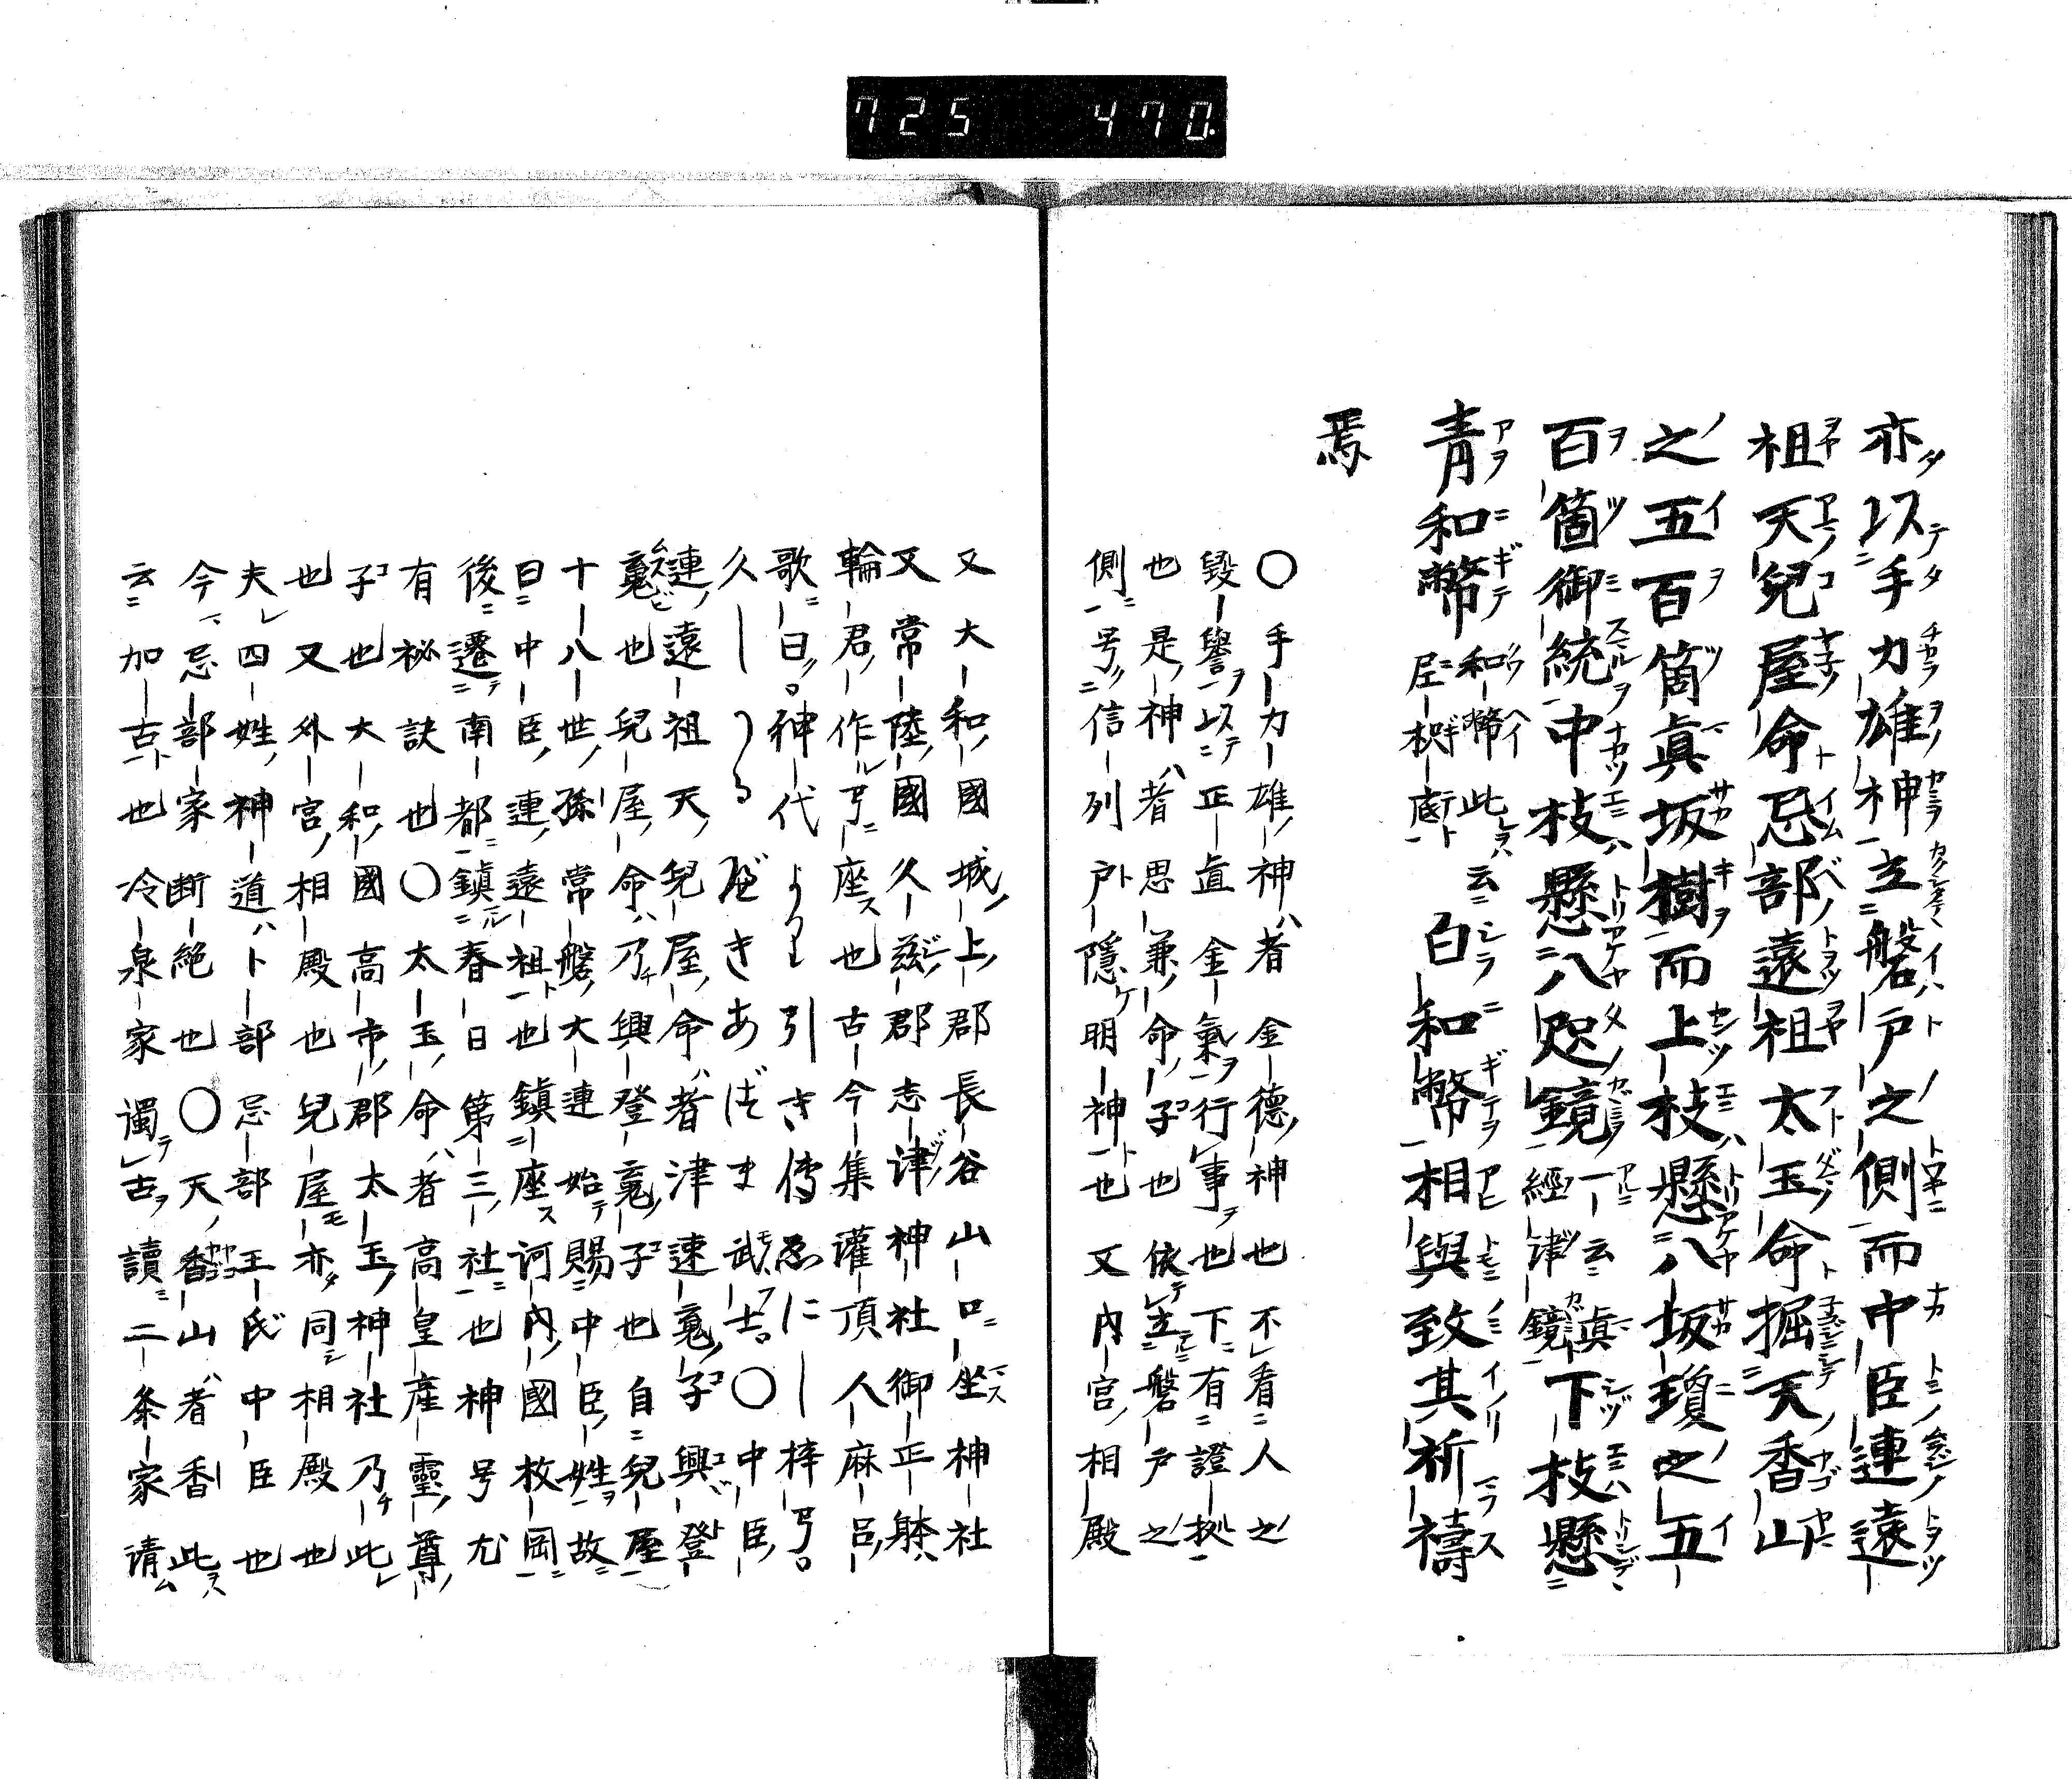 725 470
亦以手力雄神立磐戸之側而中臣連遠
祖天兒屋命忌部遠祖太玉命掘天香山
之五百箇眞坂樹而上枝懸八坂瓊之五
百箇御統中枝懸八咫鏡一云眞經津鏡下枝懸
青和幣和幣此云尼枳底白和幣相與致其祈禱
焉
〇手力雄神者金德神也不看人之
毀譽以正直金氣行事也下有證拠
也是神者思兼命子也依立磐戸之
側号信列戸隱明神也又内宮相殿
又大和國城上郡長谷山口坐神社
又常陸國久茲郡志津神社御正躰
輪君作弓座也古今集灌頂人麻呂
歌曰神代より引き傳ゑに梓弓
久しつるびきあづま武士〇中臣
連遠祖天兒屋命者津速䰟子興登
䰟也兒屋命乃興登䰟子也自兒屋
十八世孫常盤大連始賜中臣姓故
曰中臣連遠祖也鎮座河内國枚岡
後遷南都鎮春日第三社也神号尤
有祕訣也〇太玉命者高皇産靈尊
子也大和國高市郡太玉神社乃此
也又外宮相殿也兒屋亦同相殿也
夫四姓神道卜部忌部王氏中臣也
今忌部家断絶也〇天香山者香此
云加古也冷泉家濁古讀二条家清